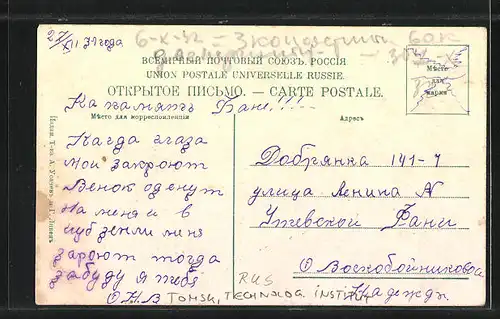 27/XII 31 года
6-X-32 –
ВСЕМІРНЫЙ ПОЧТОВЫЙ СОЮЗЪ. РОССІЯ
UNION POSTALE UNIVERSELLE RUSSIE.
ОТКРЫТОЕ ПИСЬМО. — CARTE POSTALE.
Мѣсто
для
марки
На память Фани!!!
Мѣсто для корреспонденціи
Адресъ
Кагда глаза
мои закроют
Венок оденут
На меня и в
глуб земли меня
зароют тогда
забуду я тебя
О Н В
Добрянка 141-7
улица Ленина N
Утевской Фани
О Воскобойниковой
Надежд.
RUS
TOMSK, TECHNOLOG. INSTITUT